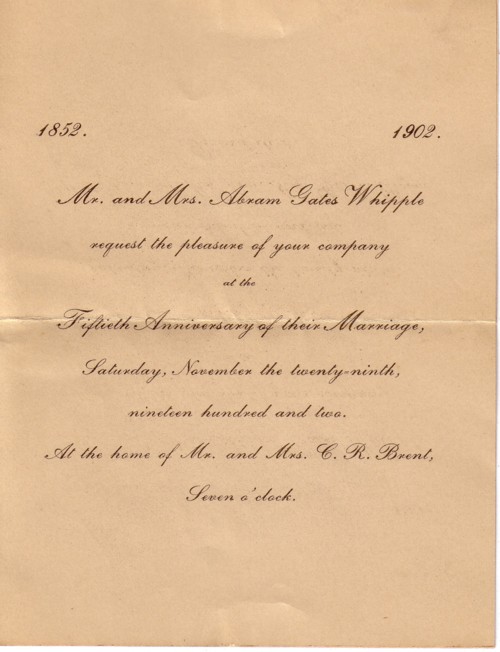 1852. 1902.
Mr. and Mrs. Abram Gates Whipple
request the pleasure of your company
at the
Fiftieth Anniversary of their Marriage,
Saturday, November the twenty-ninth,
nineteen hundred and two.
At the home of Mr. and Mrs. C. R. Brent,
Seven o'clock.